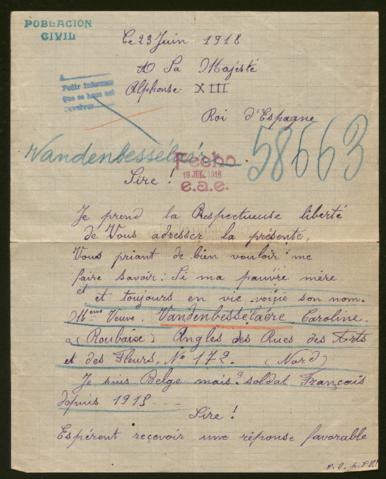 POBLACION
CIVIL
Le 23 Juin 1918
A Sa Majesté
Alphonse XIII
Pedir informes
que se haga así
Roi d'Espagne
Wandenbesselaère
58663
Fecho
10 JUL. 1918
e.a.e.
Sire!
Je prend la Respectueuse liberté
de Vous adresser la présente.
Vous priant de bien vouloir me
faire savoir: Si ma pauvre mère
et et toujours en vie voiçie son nom.
Mme Veuve. Vandenbesselaère Caroline.
a (Roubaise) Angles des Rues des Arts
et des Fleurs, No 172. (Nord)
Je suis Belge mais soldat François
depuis 1915 -
Sire!
Espérent reçevoir une réponse favorable